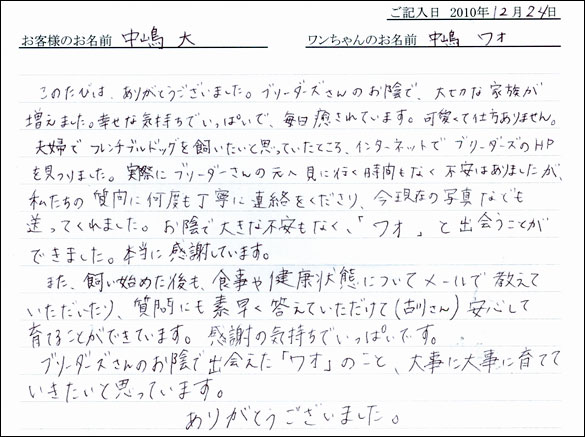 ご記入日 2010年12月24日
お客様のお名前 中嶋 大 ワンちゃんのお名前 中嶋 ワオ
このたびは、ありがとうございました。ブリーダーズさんのお陰で、大切な家族が
増えました。幸せな気持ちでいっぱいで、毎日癒されています。可愛くて仕方ありません。
夫婦でフレンチブルドッグを飼いたいと思っていたところ、インターネットでブリーダーズのHP
を見つけました。実際にブリーダーさんの元へ見に行く時間もなく不安はありましたが、
私たちの質問に何度も丁寧に連絡をくださり、今現在の写真なども
送ってくれました。お陰で大きな不安もなく、「ワオ」と出会うことが
できました。本当に感謝しています。
また、飼い始めた後も、食事や健康状態についてメールで教えて
いただいたり、質問にも素早く答えていただけて(古川さん)安心して
育てることができています。感謝の気持ちでいっぱいです。
ブリーダーズさんのお陰で出会えた「ワオ」のこと、大事に大事に育てて
いきたいと思っています。
ありがとうございました。